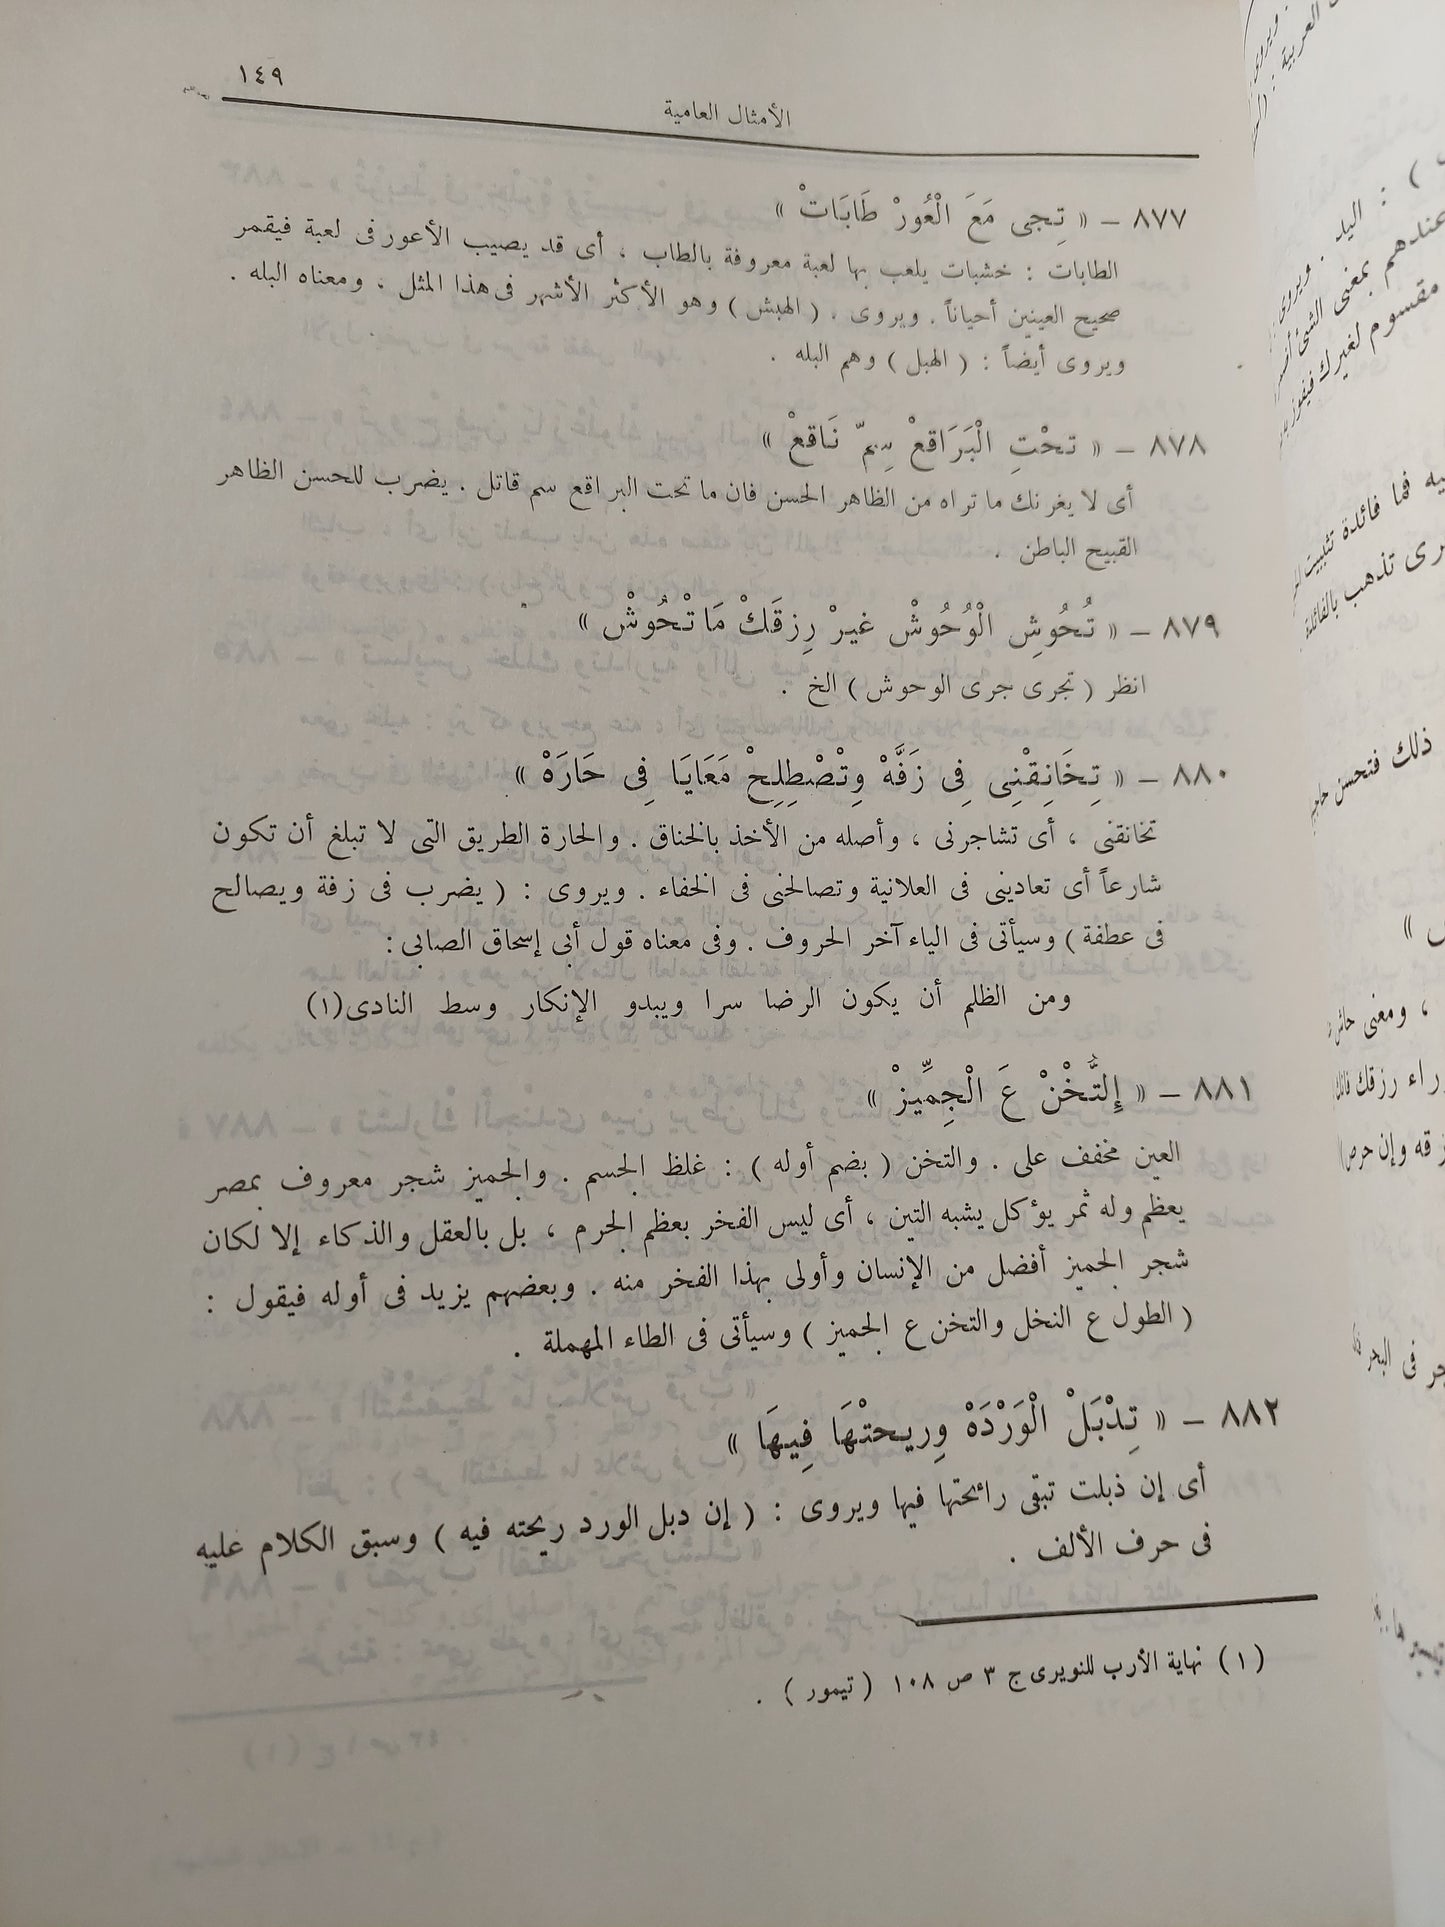 ١٤٩
الأمثال العامية
٨٧٧ – « تِجِى مَعَ الْعُورْ طَابَاتْ »
الطابات : خشبات يلعب بها لعبة معروفة بالطاب ، أى قد يصيب الأعور فى لعبة فيقمر
صحيح العينين أحياناً . ويروى . ( الهبش ) وهو الأكثر الأشهر فى هذا المثل ، ومعناه البله .
ويروى أيضاً : ( الهبل ) وهم البله .
٨٧٨ – « تحْتِ الْبَرَاقعْ سِمّ نَاقعْ »
أى لا يغرنك ما تراه من الظاهر الحسن فان ما تحت البراقع سم قاتل . يضرب للحسن الظاهر
القبيح الباطن .
٨٧٩ – « تُحُوشِ الْوُحُوشْ غيرْ رِزقَكْ مَا تْحُوشْ »
انظر ( تجرى جرى الوحوش ) الخ .
٨٨٠ – « تِخَانِقْنِى فِى زَفَّهْ وِتْصْطِلِحْ مَعَايَا فِى حَارَهْ »
تخانقنى ، أى تشاجرنى ، وأصله من الأخذ بالخناق . والحارة الطريق التى لا تبلغ أن تكون
شارعاً أى تعادينى فى العلانية وتصالحنى فى الخفاء . ويروى : ( يضرب فى زفة ويصالح
فى عطفة ) وسيأتى فى الياء آخر الحروف . وفى معناه قول أبى إسحاق الصابى :
ومن الظلم أن يكون الرضا سرا ويبدو الإنكار وسط النادى(١)
٨٨١ – « إِلتُّخْنْ عَ الْجِمِّيزْ »
العين مخفف على . والتخن ( بضم أوله ) : غلظ الجسم . والجميز شجر معروف بمصر
يعظم وله ثمر يؤكل يشبه التين ، أى ليس الفخر بعظم الجرم ، بل بالعقل والذكاء إلا لكان
شجر الجميز أفضل من الإنسان وأولى بهذا الفخر منه . وبعضهم يزيد فى أوله فيقول :
( الطول ع النخل والتخن ع الجميز ) وسيأتى فى الطاء المهملة .
٨٨٢ – « تِدْبَلْ الْوَرْدَهْ وِريحتْهَا فِيهَا »
أى إن ذبلت تبقى رائحتها فيها ويروى : ( إن دبل الورد ريحته فيه ) وسبق الكلام عليه
فى حرف الألف .
(١) نهاية الأرب للنويرى ج ٣ ص ١٠٨ ( تيمور ) .